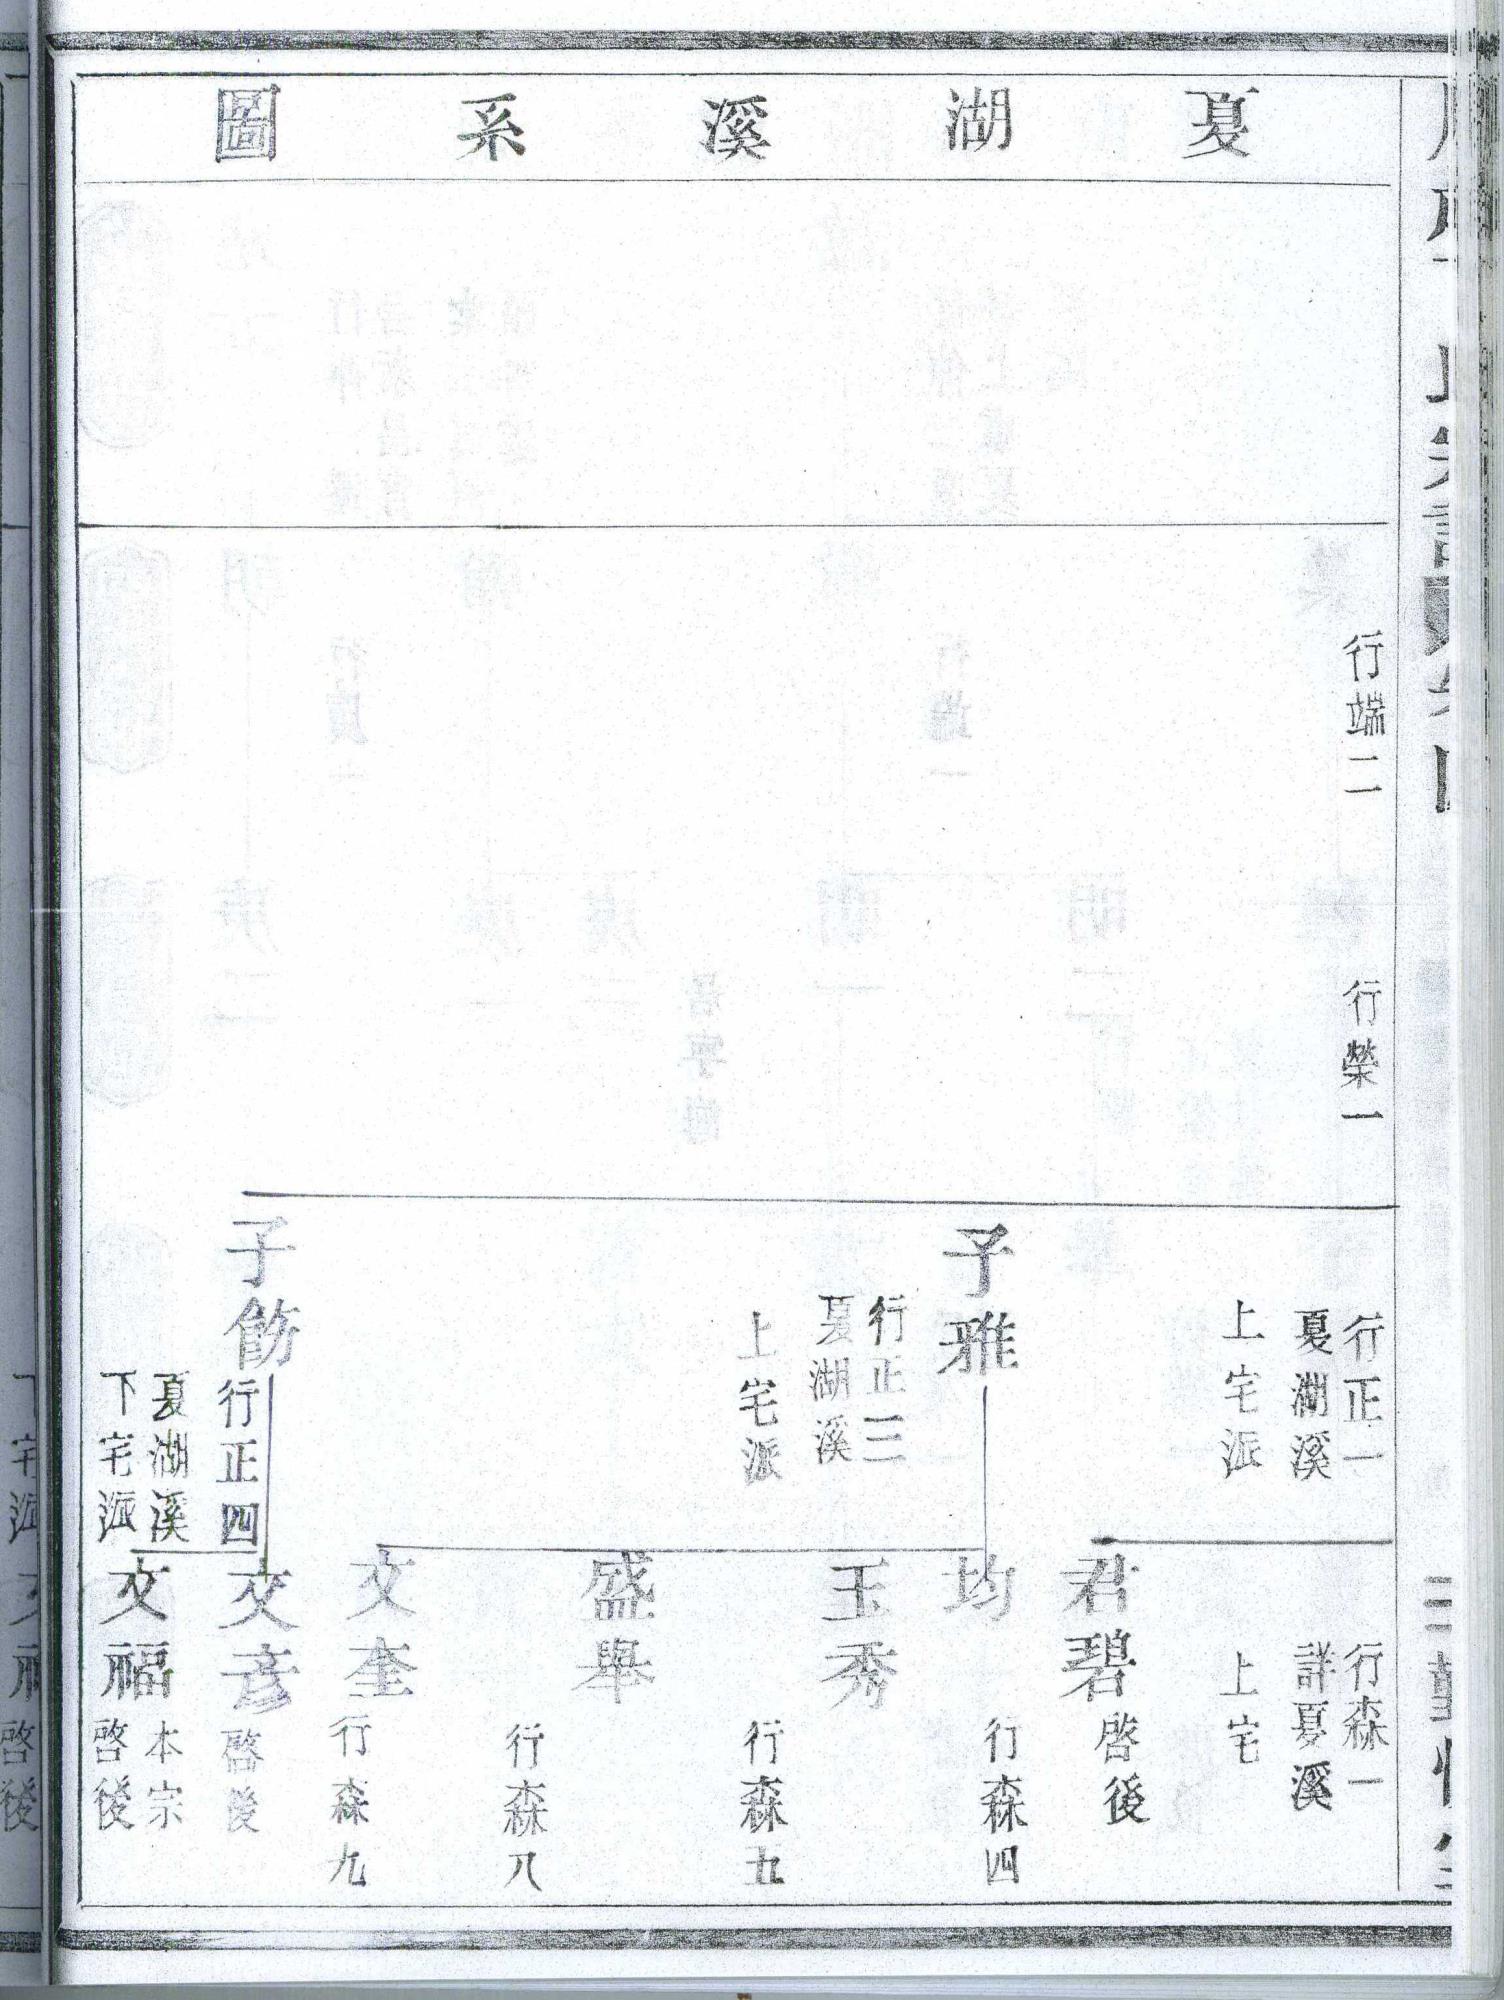 夏湖溪系圖
行端二
行榮一
行正一
夏湖溪
上宅派
子雅
行正三
夏湖溪
上宅派
子飭
行正四
夏湖溪
下宅派
行森一
詳夏溪
上宅
君碧
啓後
均
行森四
玉秀
行森五
盛舉
行森八
文奎
行森九
文彥
啓後
文福
本宗
啓後